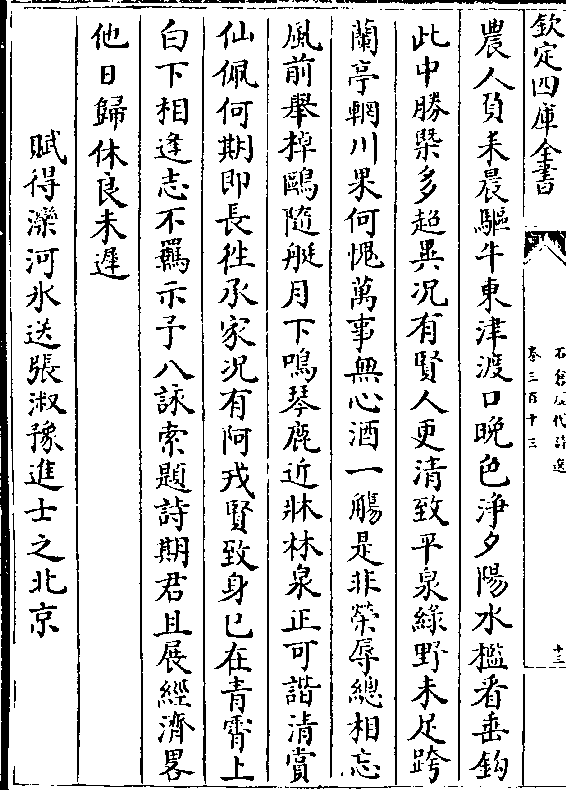 欽定四庫全書
石倉歷代詩選
卷三百十三
十三
農人負耒晨驅牛東津渡口晚色淨夕陽水檻看垂鈎
此中勝槩多超異况有賢人更清致平泉綠野未足跨
蘭亭輞川果何愧萬事無心酒一觴是非榮辱總相忘
風前舉棹鷗隨艇月下鳴琴鹿近牀林泉正可諧清賞
仙佩何期即長往承家况有阿戎賢致身已在青霄上
白下相逢志不羈示予八詠索題詩期君且展經濟畧
他日歸休良未遲
賦得灤河氷送張淑豫進士之北京